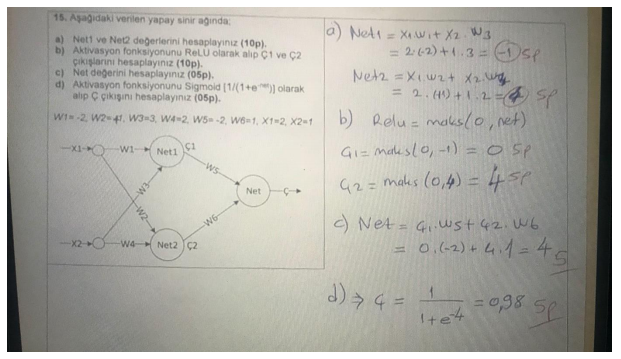 15. Aşağıdaki verilen yapay sinir ağında;
a) Net1 ve Net2 değerlerini hesaplayınız (10p).
b) Aktivasyon fonksiyonunu ReLU olarak alıp Ç1 ve Ç2
çıkışlarını hesaplayınız (10p).
c) Net değerini hesaplayınız (05p).
d) Aktivasyon fonksiyonunu Sigmoid [1/(1+e⁻ⁿᵉᵗ)] olarak
alıp Ç çıkışını hesaplayınız (05p).
W1= -2, W2=+1, W3=3, W4=2, W5= -2, W6=1, X1=2, X2=1
X1
W1
Net1
Ç1
W5
W3
Net
Ç
W2
W6
X2
W4
Net2
Ç2
a) Net1 = X1.W1 + X2.W3
= 2.(-2)+1.3 = -1 5p
Net2 = X1.W2 + X2.W4
= 2.(+1)+1.2 = 4 5p
b) Relu = maks(0, net)
Ç1 = maks(0, -1) = 0 5p
Ç2 = maks(0,4) = 4 5p
c) Net = Ç1.W5 + Ç2.W6
= 0.(-2) + 4.1 = 4 5
d) ⇒ Ç = 1/(1+e⁻⁴) = 0,98 5p